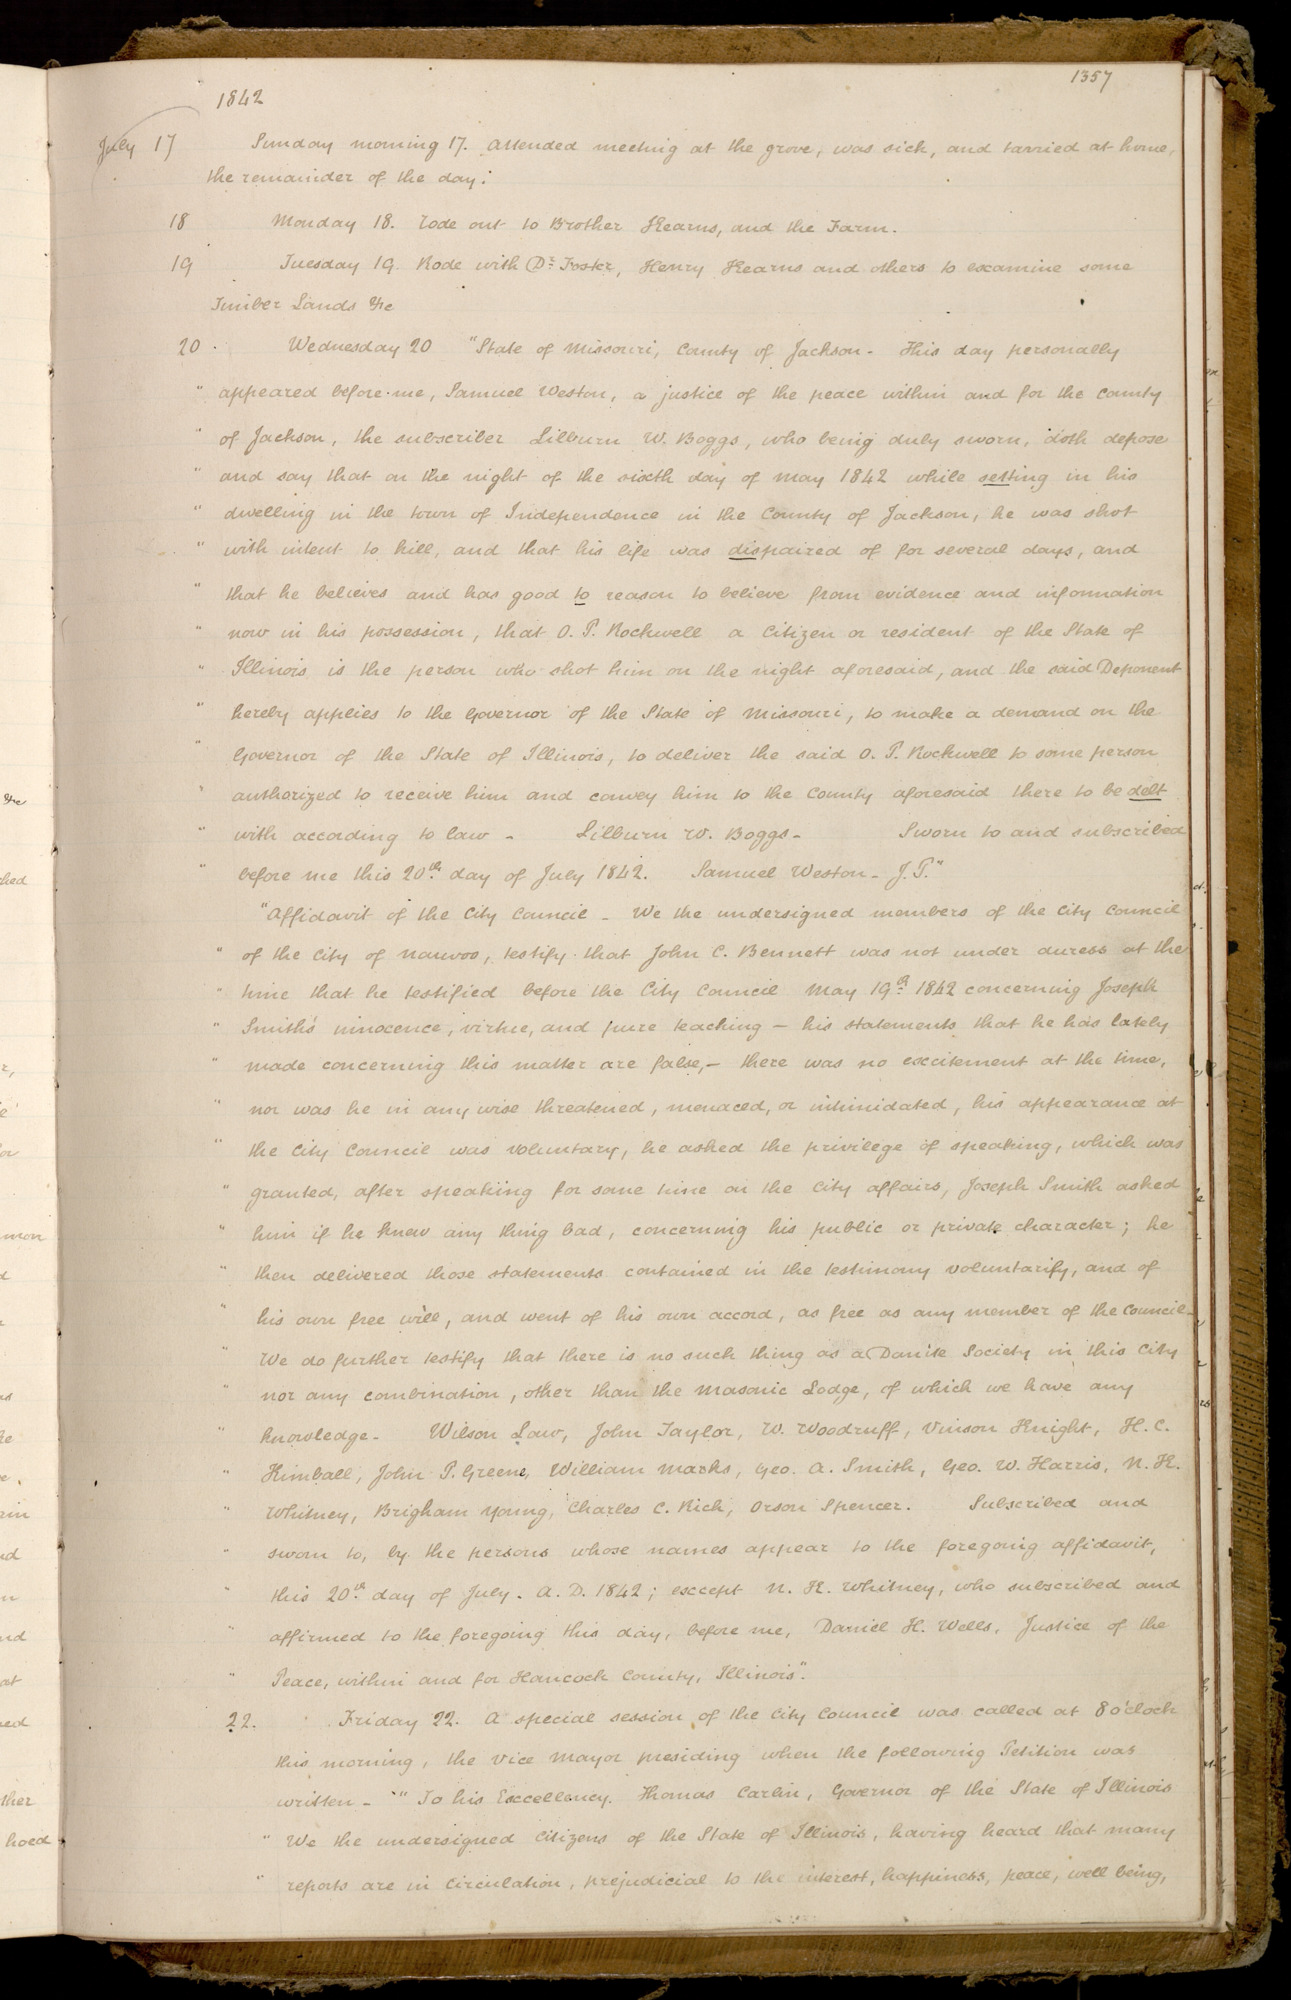 1357
1842
July 17 Sunday morning 17. attended meeting at the grove, was sick, and tarried at home,
the remainder of the day.
18 Monday 18. rode out to Brother Hearns, and the Farm.
19 Tuesday 19. Rode with Dr. Foster, Henry Hearns and others to examine some
Timber Lands &c
20 Wednesday 20 "State of Missouri, County of Jackson - This day personally
" appeared before me, Samuel Weston, a justice of the peace within and for the county
" of Jackson, the subscriber Lilburn W. Boggs, who being duly sworn, doth depose
" and say that on the night of the sixth day of May 1842 while setting in his
" dwelling in the town of Independence in the County of Jackson, he was shot
" with intent to kill, and that his life was dispaired of for several days, and
" that he believes and has good to reason to believe from evidence and information
" now in his possession, that O. P. Rockwell a Citizen or resident of the State of
" Illinois is the person who shot him on the night aforesaid, and the said Deponent
" hereby applies to the Governor of the State of Missouri, to make a demand on the
" Governor of the State of Illinois, to deliver the said O. P. Rockwell to some person
" authorized to receive him and convey him to the County aforesaid there to be delt
" with according to law - Lilburn W. Boggs - Sworn to and subscribed
" before me this 20th day of July 1842. Samuel Weston - J. P."
"Affidavit of the City Council - We the undersigned members of the City Council
" of the City of Nauvoo, testify that John C. Bennett was not under duress at the
" time that he testified before the City Council May 19th 1842 concerning Joseph
" Smith's innocence, virtue, and pure teaching - his statements that he has lately
" made concerning this matter are false, - there was no excitement at the time,
" nor was he in any wise threatened, menaced, or intimidated, his appearance at
" the City Council was voluntary, he asked the privilege of speaking, which was
" granted, after speaking for some time on the City affairs, Joseph Smith asked
" him if he knew any thing bad, concerning his public or private character; he
" then delivered those statements contained in the testimony voluntarily, and of
" his own free will, and went of his own accord, as free as any member of the Council -
" We do further testify that there is no such thing as a Danite Society in this City
" nor any combination, other than the Masonic Lodge, of which we have any
" knowledge - Wilson Law, John Taylor, W. Woodruff, Vinson Knight, H. C.
" Kimball, John P. Greene, William Marks, Geo. A. Smith, Geo. W. Harris, N. K.
" Whitney, Brigham Young, Charles C. Rich, Orson Spencer. Subscribed and
" sworn to, by the persons whose names appear to the foregoing affidavit,
" this 20th day of July. A. D. 1842; except N. K. Whitney, who subscribed and
" affirmed to the foregoing this day, before me, Daniel H. Wells, Justice of the
" Peace, within and for Hancock County, Illinois".
22. Friday 22. A special session of the City Council was called at 8 o'clock
this morning, the Vice Mayor presiding when the following Petition was
written - "To his Excellency. Thomas Carlin, Governor of the State of Illinois
" We the undersigned citizens of the State of Illinois, having heard that many
" reports are in circulation, prejudicial to the interest, happiness, peace, well being,